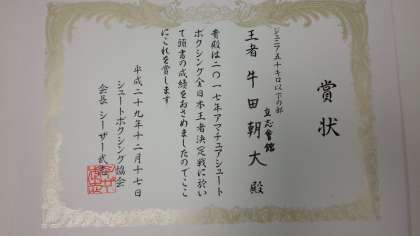 賞状
ジュニア五十キロ以下の部
立志會館
王者 牛田朝大 殿
貴殿は二〇一七年アマチュアシュート
ボクシング全日本王者決定戦に於い
て頭書の成績をおさめましたのでここ
にこれを賞します
平成二十九年十二月十七日
シュートボクシング協会
会長 シーザー武志